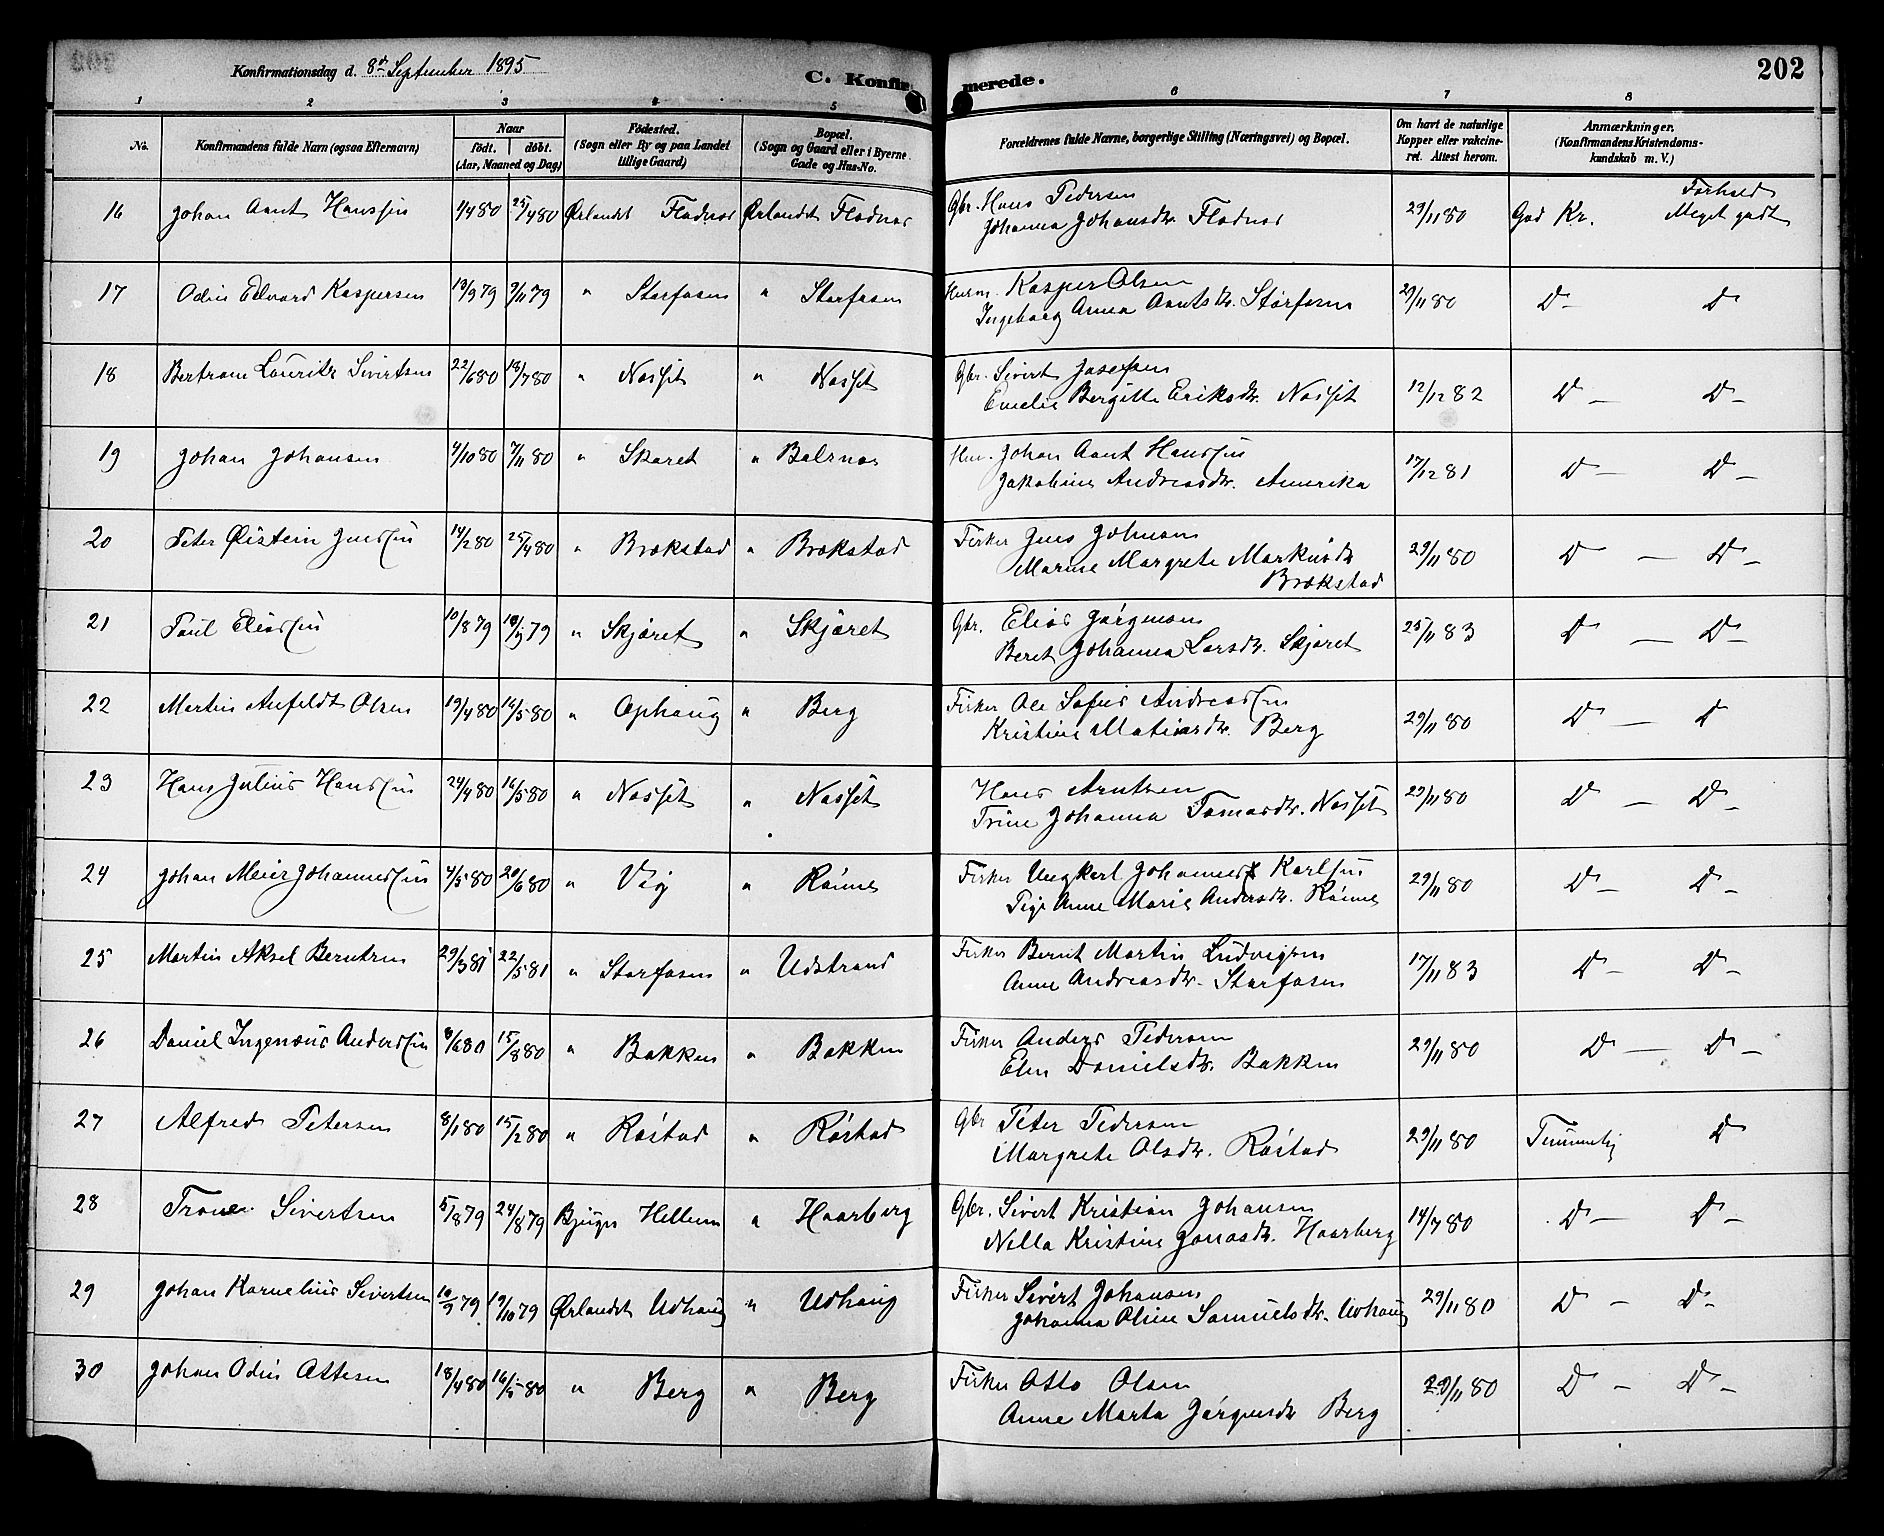 Konfirmationsdag d. 8de September 1895
C. Konfirmerede.
202
1 2 3 4 5 6 7 8
No.
Konfirmandens fulde Navn (ogsaa Efternavn)
Naar
født. døbt.
(Aar, Maaned og Dag)
Fødested.
(Sogn eller By og paa Landet
tillige Gaard)
Bopæl.
(Sogn og Gaard eller i Byerne
Gade og Hus-No.
Forældrenes fulde Navne, borgerlige Stilling (Næringsvei) og Bopæl.
Om havt de naturlige
Kopper eller vakcine-
ret. Attest herom.
Anmærkninger.
(Konfirmandens Kristendoms-
kundskab m. V.)
16 Johan Aant Hanssen 1/4 80 25/4 80 Ørlandet Fladnes Ørlandet Fladnes Gbr. Hans Pedersen 29/11 80 God Kr. Forhold
Johanna Johansdtr. Fladnes Meget godt
17 Odin Edvard Kaspersen 13/9 79 9/11 79 " Storfosen " Storfosen Husm. Kasper Olsen 29/11 80 D- D
Ingeborg Anna Aantsdtr. Storfosen
18 Bertram Lauritz Sivertsen 22/6 80 18/7 80 " Nosset " Nosset Gbr. Sivert Josefsen 12/12 82 D - D-
Emelie Bergitte Eriksdtr. Nosset
19 Johan Johansen 4/10 80 7/11 80 " Skaret " Balsnes Johan Aant Hanssen 17/12 81 D - D-
Jakobine Andreasdtr. Amerika
20 Peter Øistein Jenssen 14/2 80 25/4 80 " Brækstad " Brækstad Fisker Jens Johnsen 29/11 80 D - D-
Marine Margrete Markusdtr
Brækstad
21 Paul Eliassen 10/8 79 19 " Skjøret " Skjøret Gbr. Elias Jørgensen 25/11 83 D - D-
Beret Johanna Larsdtr. Skjøret
22 Martin Anfeldt Olsen 19/4 80 16/5 80 " Ophaug " Berg Fisker Ole Sofus Andreassen 29/11 80 D - D
Kristine Matiasdtr. Berg
23 Hans Julius Hanssen 24/4 80 16/5 80 " Nosset " Nosset Hans Arntsen 29/11 80 D - D-
Trine Johanna Tomasdtr. Nosset
24 Johan Meier Johannessen 4/5 80 20/6 80 " Vig " Rønne Fisker Ungkarl Johannes Karlsen 29/11 80 D- D-
Pige Anne Marie Andersdtr. Rønne
25 Martin Aksel Berntsen 29/3 81 22/5 81 " Storfosen " Udstrand Fisker Bernt Martin Ludvigsen 17/11 83 D- D-
Anne Andreasdtr. Storfosen
26 Daniel Ingenius Anderssen 8/6 80 15/8 80 " Bakken " Bakken Fisker Anders Pedersen 29/11 80 D - D-
Elen Danielsdtr. Bakken
27 Alfred Petersen 8/1 80 15/2 80 " Røstad " Røstad Gbr Peter Pedersen 29/11 80 Temmelig D
Margrete Olsdtr. Røstad
28 Sivertsen 5/8 79 24/8 79 Bjugn Hellem " Haarberg Gbr. Sivert Kristian Johansen 14/7 80 D- D-
Nella Kristine Jonasdtr. Haarberg
29 Johan Kornelius Sivertsen 10/9 79 19/10 79 Ørlandet Udhaug " Udhaug Fisker Sivert Johansen 29/11 80 D - D-
Johanna Oline Samuelsdtr. Udhaug
30 Johan Odin Ottesen 18/4 80 16/5 80 " Berg " Berg Fisker Otto Olsen 29/11 80 D - D-
Anne Marta Jørgensdtr Berg